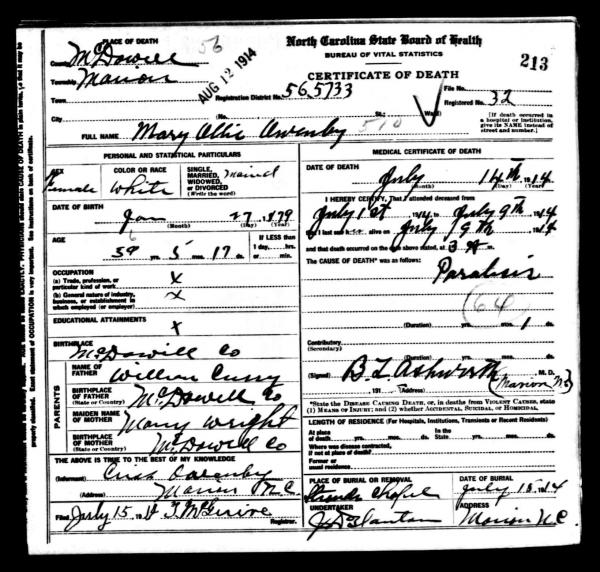 PLACE OF DEATH
County McDowell
Township Marion
Town
City
(No. St.; Ward)
56
AUG 12 1914
North Carolina State Board of Health
BUREAU OF VITAL STATISTICS
213
CERTIFICATE OF DEATH
Registration District No. 565733
File No.
Registered No. 32
[If death occurred in a hospital or institution, give its NAME instead of street and number.]
FULL NAME Mary Ollie Owenby
510
PERSONAL AND STATISTICAL PARTICULARS
SEX
Female
COLOR OR RACE
White
SINGLE, MARRIED, WIDOWED, OR DIVORCED (Write the word)
Married
DATE OF BIRTH
Jan 27, 1879
(Month) (Day) (Year)
AGE
yrs. 5 mos. 17 ds.
If LESS than 1 day, hrs. or min.
OCCUPATION
(a) Trade, profession, or particular kind of work X
(b) General nature of industry, business, or establishment in which employed (or employer) X
EDUCATIONAL ATTAINMENTS X
BIRTHPLACE
McDowell Co
PARENTS
NAME OF FATHER William Curry
BIRTHPLACE OF FATHER (State or Country) McDowell Co
MAIDEN NAME OF MOTHER Mary Wright
BIRTHPLACE OF MOTHER (State or Country) McDowell Co
THE ABOVE IS TRUE TO THE BEST OF MY KNOWLEDGE
(Informant) Owenby
(Address) Marion N.C.
Filed July 15 191
Registrar.
MEDICAL CERTIFICATE OF DEATH
DATE OF DEATH
July 14th, 1914
(Month) (Day) (Year)
I HEREBY CERTIFY, That I attended deceased from
July 1st 1914, to July 9th, 1914
that I last saw alive on July 9th, 1914
and that death occurred on the date above stated, at 3 m.
The CAUSE OF DEATH* was as follows:
Paralisis
64
(Duration) yrs. mos. 1 ds.
Contributory
(Secondary)
(Duration) yrs. mos. ds.
(Signed) B L Ashworth, M.D.
191 (Address) (Marion NC)
*State the DISEASE CAUSING DEATH, or, in deaths from VIOLENT CAUSES, state (1) MEANS OF INJURY; and (2) whether ACCIDENTAL, SUICIDAL, or HOMICIDAL.
LENGTH OF RESIDENCE (For Hospitals, Institutions, Transients or Recent Residents)
At place of death yrs. mos. ds. In the State yrs. mos. ds.
Where was disease contracted, if not at place of death?
Former or usual residence
PLACE OF BURIAL OR REMOVAL
Chapel
DATE OF BURIAL
July 15, 1914
UNDERTAKER
ADDRESS
Marion N.C.